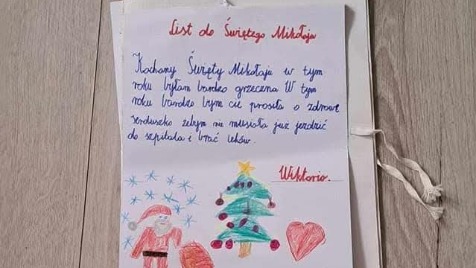 List do Świętego Mikołaja
Kochany Święty Mikołaju w tym
roku byłam bardzo grzeczna W tym
roku bardzo bym cie prosiła o zdrowe
serduszko żebym nie musiała już jezdzić
do szpitala i brać leków.
Wiktoria.